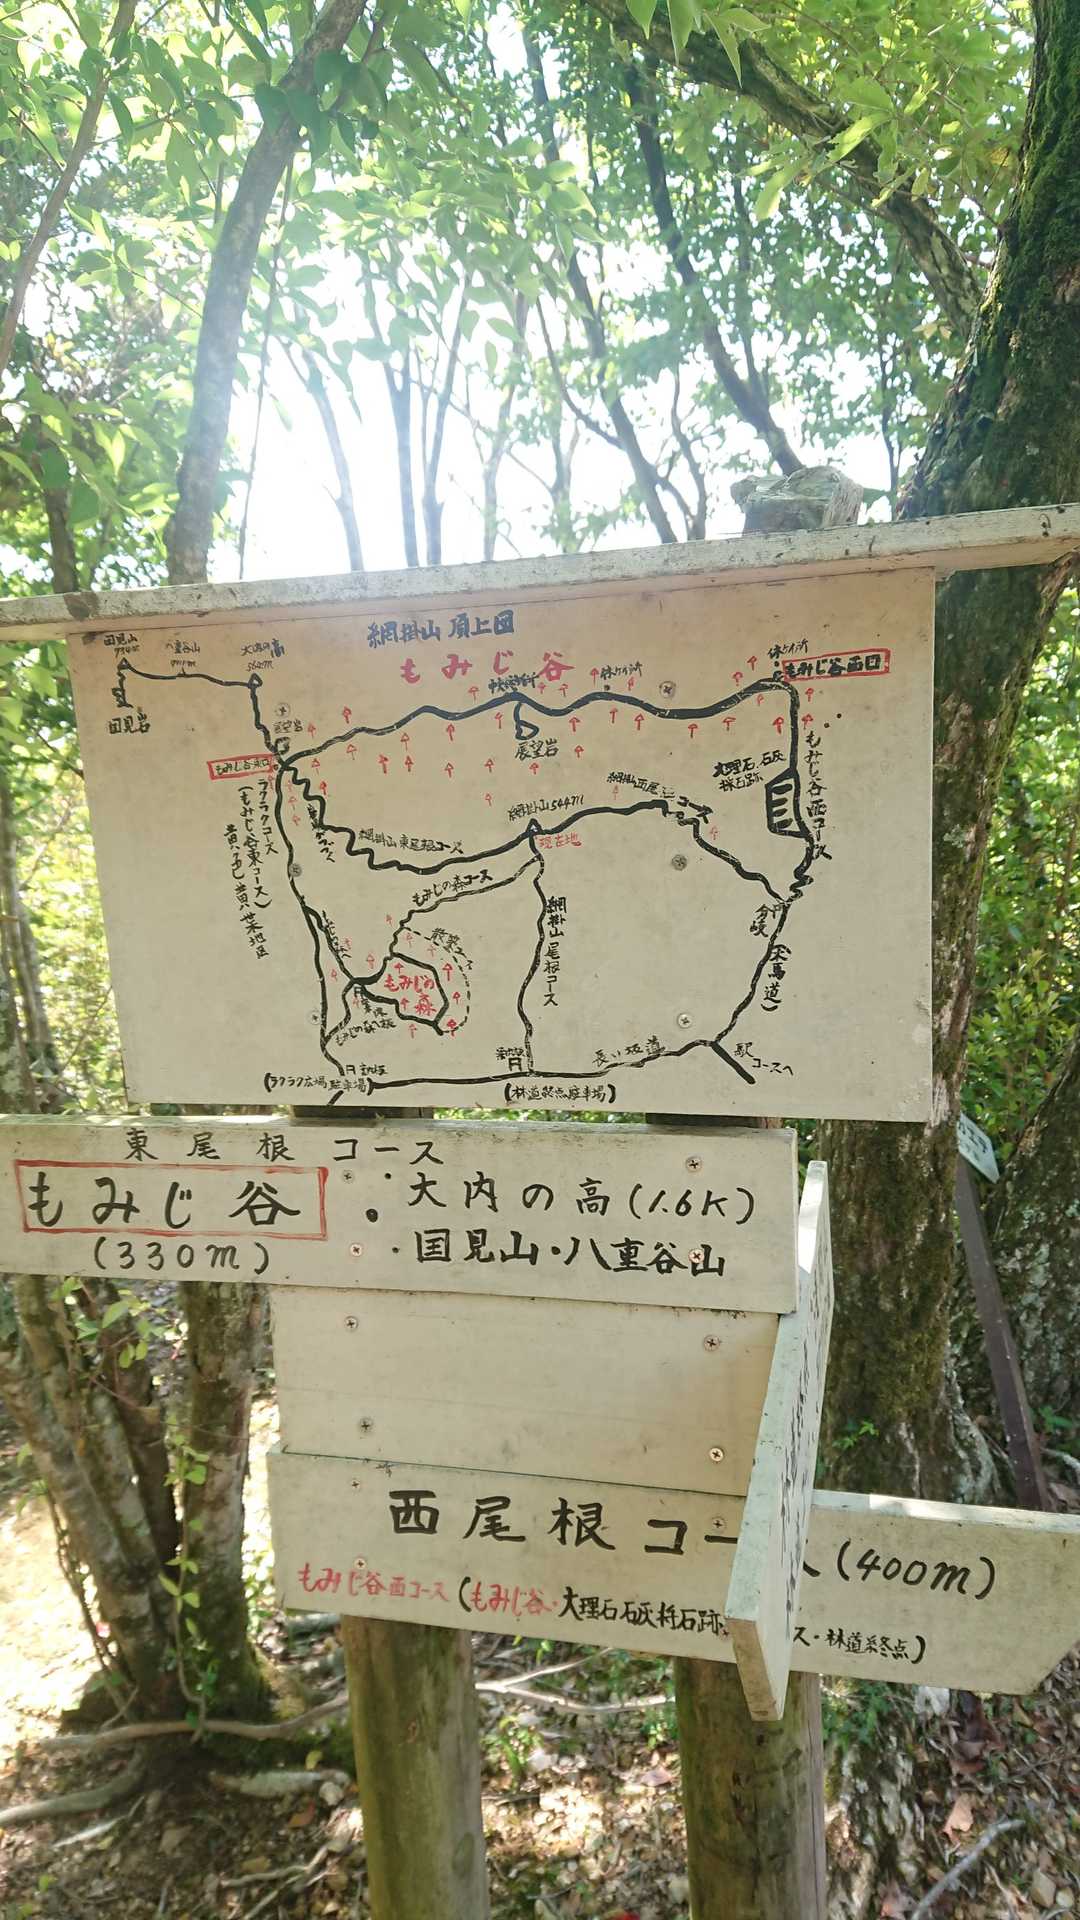 網掛山 頂上図
もみじ谷
国見山
大内の高
564m
国見岩
休ケイ所
休ケイ所
もみじ谷西口
展望岩
もみじ谷東口
大理石.石灰
採石跡
もみじ谷西コース
網掛山544m
現在地
網掛山東尾根コース
ラクラクコース
(もみじ谷東コース)
もみじの森コース
散策
もみじの
森
網掛山尾根コース
分岐
(木馬道)
長い坂道
駅
コースへ
(ラクラク広場駐車場)
(林道終点駐車場)
東尾根コース
もみじ谷
(330m)
・大内の高(1.6K)
・国見山・八重谷山
西尾根コース(400m)
もみじ谷西コース(もみじ谷・大理石石灰採石跡
ス・林道終点)